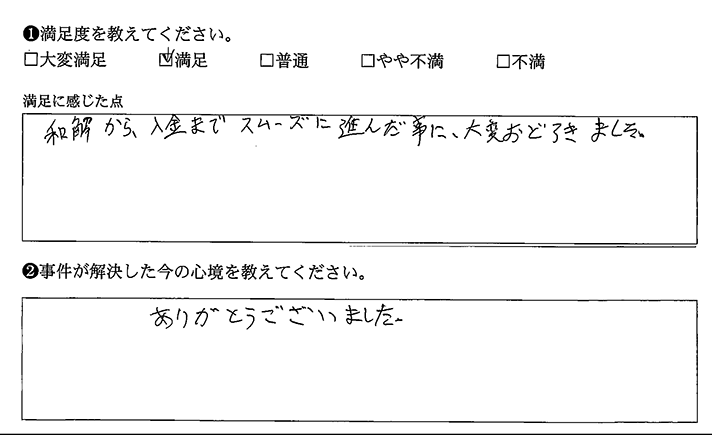 ❶満足度を教えてください。
□大変満足 ☑満足 □普通 □やや不満 □不満
満足に感じた点
和解から、入金までスムーズに進んだ事に、大変おどろきました。
❷事件が解決した今の心境を教えてください。
ありがとうございました。